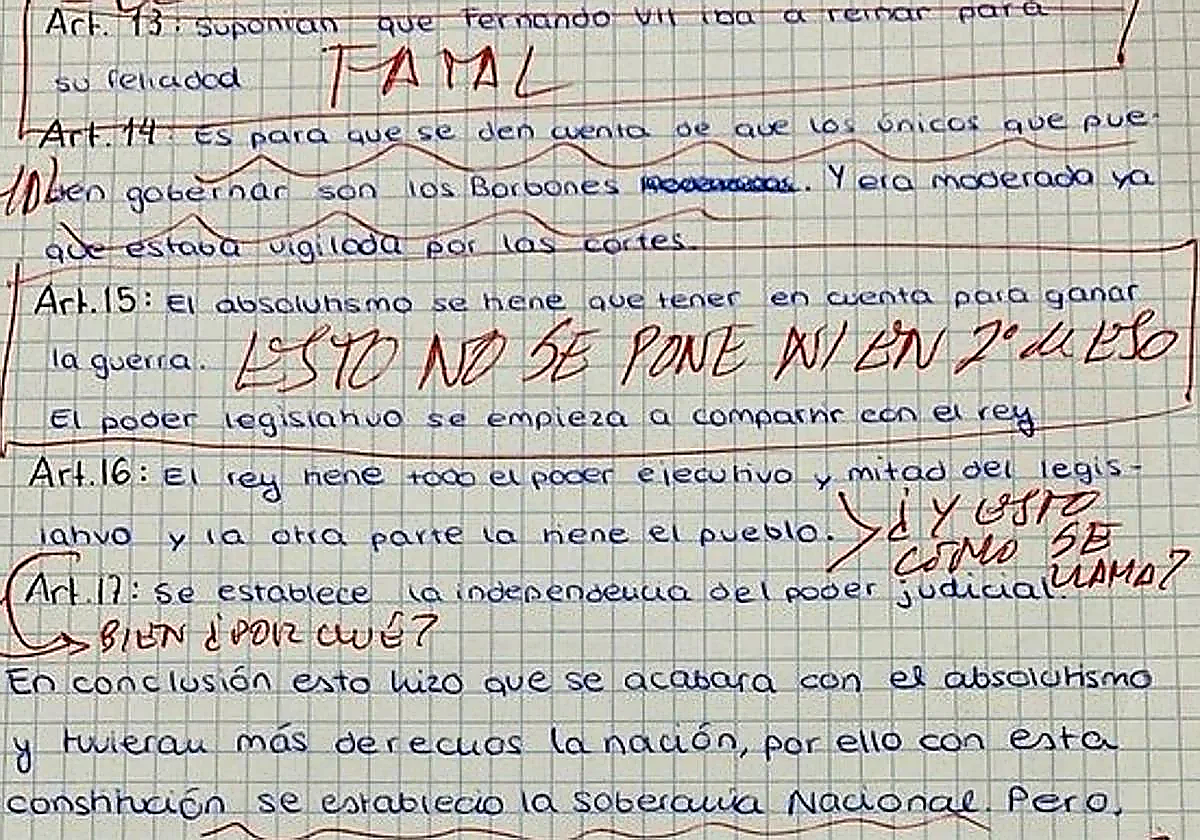 Art. 13: suponian que Fernando VII iba a reinar para
su felicidad FATAL
Art. 14: Es para que se den cuenta de que los únicos que pue-
den gobernar son los Borbones. Y era moderada ya
que estaba vigilada por las cortes.
Art.15: El absolutismo se tiene que tener en cuenta para ganar
la guerra. ESTO NO SE PONE NI EN 2º de ESO
El poder legislativo se empieza a compartir con el rey
Art.16: El rey tiene todo el poder ejecutivo y mitad del legis-
lativo y la otra parte la tiene el pueblo. ¿Y ESTO
CÓMO SE
LLAMA?
Art.17: Se establece la independencia del poder judicial
BIEN ¿POR QUÉ?
En conclusión esto hizo que se acabara con el absolutismo
y tuvieran más derechos la nación, por ello con esta
constitución se establecio la soberania Nacional. Pero,